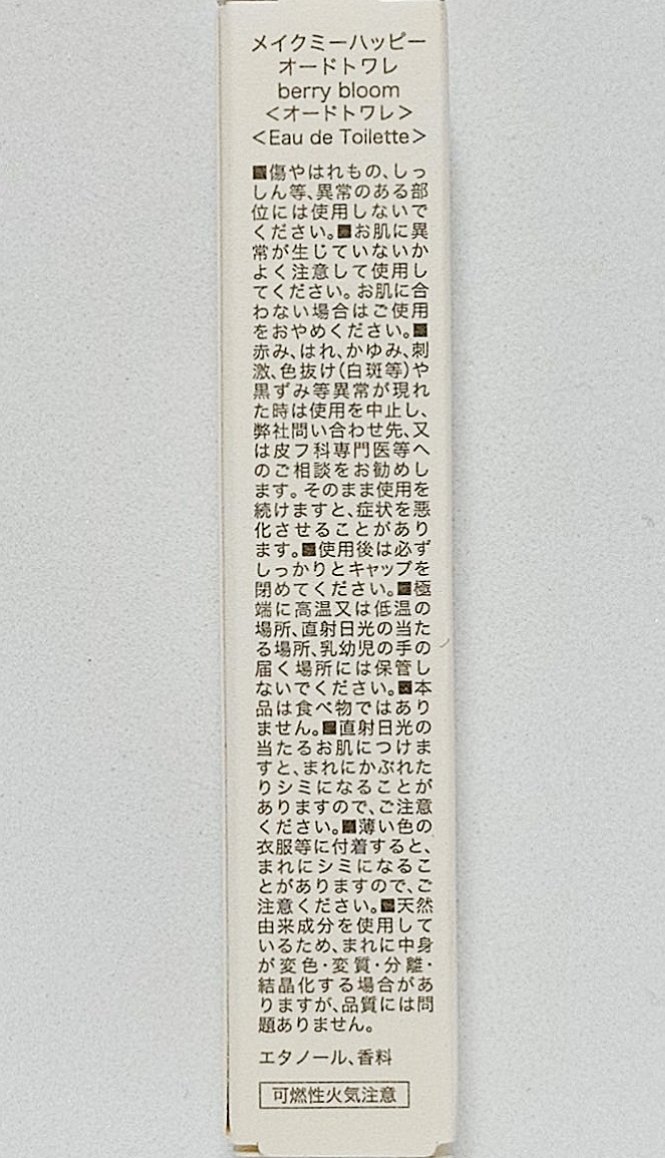 メイクミーハッピー
オードトワレ
berry bloom
＜オードトワレ＞
＜Eau de Toilette＞
■傷やはれもの、しっ
しん等、異常のある部
位には使用しないで
ください。■お肌に異
常が生じていないか
よく注意して使用し
てください。お肌に合
わない場合はご使用
をおやめください。■
赤み、はれ、かゆみ、刺
激、色抜け(白斑等)や
黒ずみ等異常が現れ
た時は使用を中止し、
弊社問い合わせ先、又
は皮フ科専門医等へ
のご相談をお勧めし
ます。そのまま使用を
続けますと、症状を悪
化させることがあり
ます。■使用後は必ず
しっかりとキャップを
閉めてください。■極
端に高温又は低温の
場所、直射日光の当た
る場所、乳幼児の手の
届く場所には保管し
ないでください。■本
品は食べ物ではあり
ません。■直射日光の
当たるお肌につけま
すと、まれにかぶれた
りシミになることが
ありますので、ご注意
ください。■薄い色の
衣服等に付着すると、
まれにシミになるこ
とがありますので、ご
注意ください。■天然
由来成分を使用して
いるため、まれに中身
が変色・変質・分離・
結晶化する場合があ
りますが、品質には問
題ありません。
エタノール、香料
可燃性火気注意